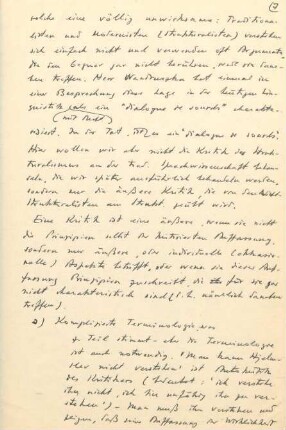 (7)
welche eine völlig unwirksame: Traditiona-
listen und Modernisten (Strukturalisten) verstehen
sich einfach nicht und verwenden oft Argumente,
die den Gegner gar nicht berühren, weit von dane-
ben treffen. Herr Wandruszka hat einmal in
einer Besprechung diese Lage in der heutigen Lin-
guistik als ein "dialogue de sourds" charakte-
(mit Recht)
risiert. In der Tat, ist es ein "dialogue de sourds".
Hier wollen wir aber nicht die Kritik des Struk-
turalismus an der trad. Sprachwissenschaft behan-
deln, die wir später ausführlich behandeln werden,
sondern nur die äußere Kritik, die von den Nicht-
strukturalisten am Strukt. geübt wird.
Eine Kritik ist eine äußere, wenn sie nicht
die Prinzipien selbst der kritisierten Auffassung,
sondern nur äußere, oder individuelle
Aspekte betrifft, oder wenn sie dieser Auf-
fassung Prinzipien zuschreibt, die für sie gar
nicht charakteristisch sind (d.h. nämlich daneben
treffen).
a) Komplizierte Terminologie, was
z. Teil stimmt – aber die Terminologie
ist auch notwendig. 'Man kann Hjelm-
slev nicht verstehen' ist
des Kritikers ( : 'ich verstehe
ihn nicht, ich bin unfähig ihn zu ver-
stehen') – Man muß ihn verstehen und
zeigen, daß seine Auffassung der Wirklichkeit